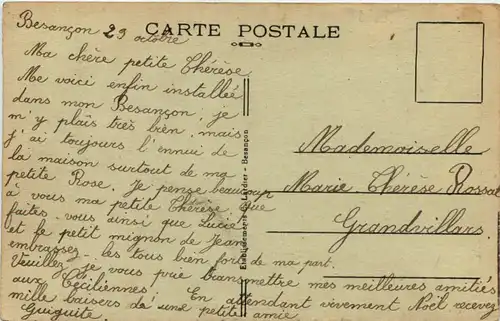 Besançon 29 octobre
CARTE POSTALE
Ma chère petite Thérèse
Me voici enfin installée
dans mon Besançon, je
m'y plais très bien, mais
j'ai toujours l'ennui de
la maison surtout de ma
petite Rose. Je pense beaucoup
à vous ma petite Thérèse que
faites-vous ainsi que Lucie
et le petit mignon de Jean
embrassez-les tous bien fort de ma part.
Veuillez je vous prie transmettre mes meilleures amitiés
aux Céciliennes. En attendant vivement Noël recevez
mille baisers de une petite amie.
Guiguite.
Etablissements - Besançon
Mademoiselle
Marie Thérèse Rossat
Grandvillars